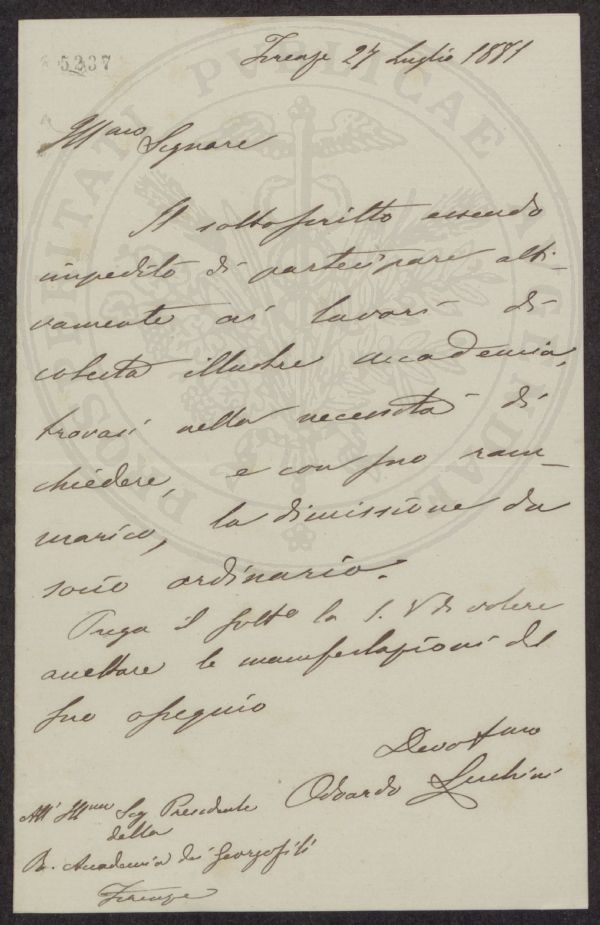 5237
Firenze 27 Luglio 1881
Ill.mo Signore
Il sottoscritto essendo
impedito di partecipare atti-
vamente ai lavori di
cotesta illustre accademia,
trovasi nella necessità di
chiedere, e con suo ram-
marico, la dimissione da
socio ordinario.
Prega il sotto la S. V di volere
accettare le manifestazioni del
suo ossequio
Devotmo
Odoardo Luchini
All' Illmo Sig Presidente
della
R. Accademia dei Georgofili
Firenze
PROSPERITATI PUBLICAE AUGENDAE